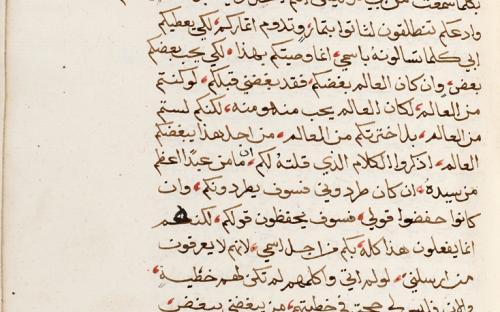 وادعكم تنطلقون لتاتوا بثمار، وتدوم اثماركم، لكي يعطيكم
ابي كلما تسالونه باسمي، انما وصيتكم بهذا، لكي يحب بعضكم
بعض، وان كان العالم يبغضكم، فقد بغضني قبلكم، لو كنتم
من العالم، لكان العالم يحب منه ومنه، لكنكم لستم
من العالم، بل اخترتكم من العالم، من اجل هذا يبغضكم
العالم، اذكروا الكلام الذي قلته لكم، ان ما من عبد اعظم
من سيده، ان كان طردوني فسوف يطردونكم، وان
كانوا حفضوا قولي، فسوف يحفظون قولكم، لكنهم
انما يفعلون هذا كله، بكم من اجل اسمي، لانهم لا يعرفون
من ارسلني، لو لم اتي واكلمهم لم تكن لهم خطية،
والان فليس لهم حجة في خطيتهم، من يبغضني يبغض